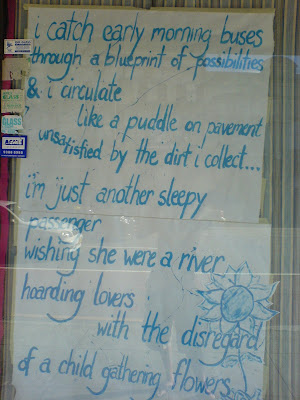 i catch early morning buses
through a blueprint of possibilities
& i circulate
like a puddle on pavement
unsatisfied by the dirt i collect...
i'm just another sleepy
passenger
wishing she were a river
hoarding lovers
with the disregard
of a child gathering flowers
GLASS